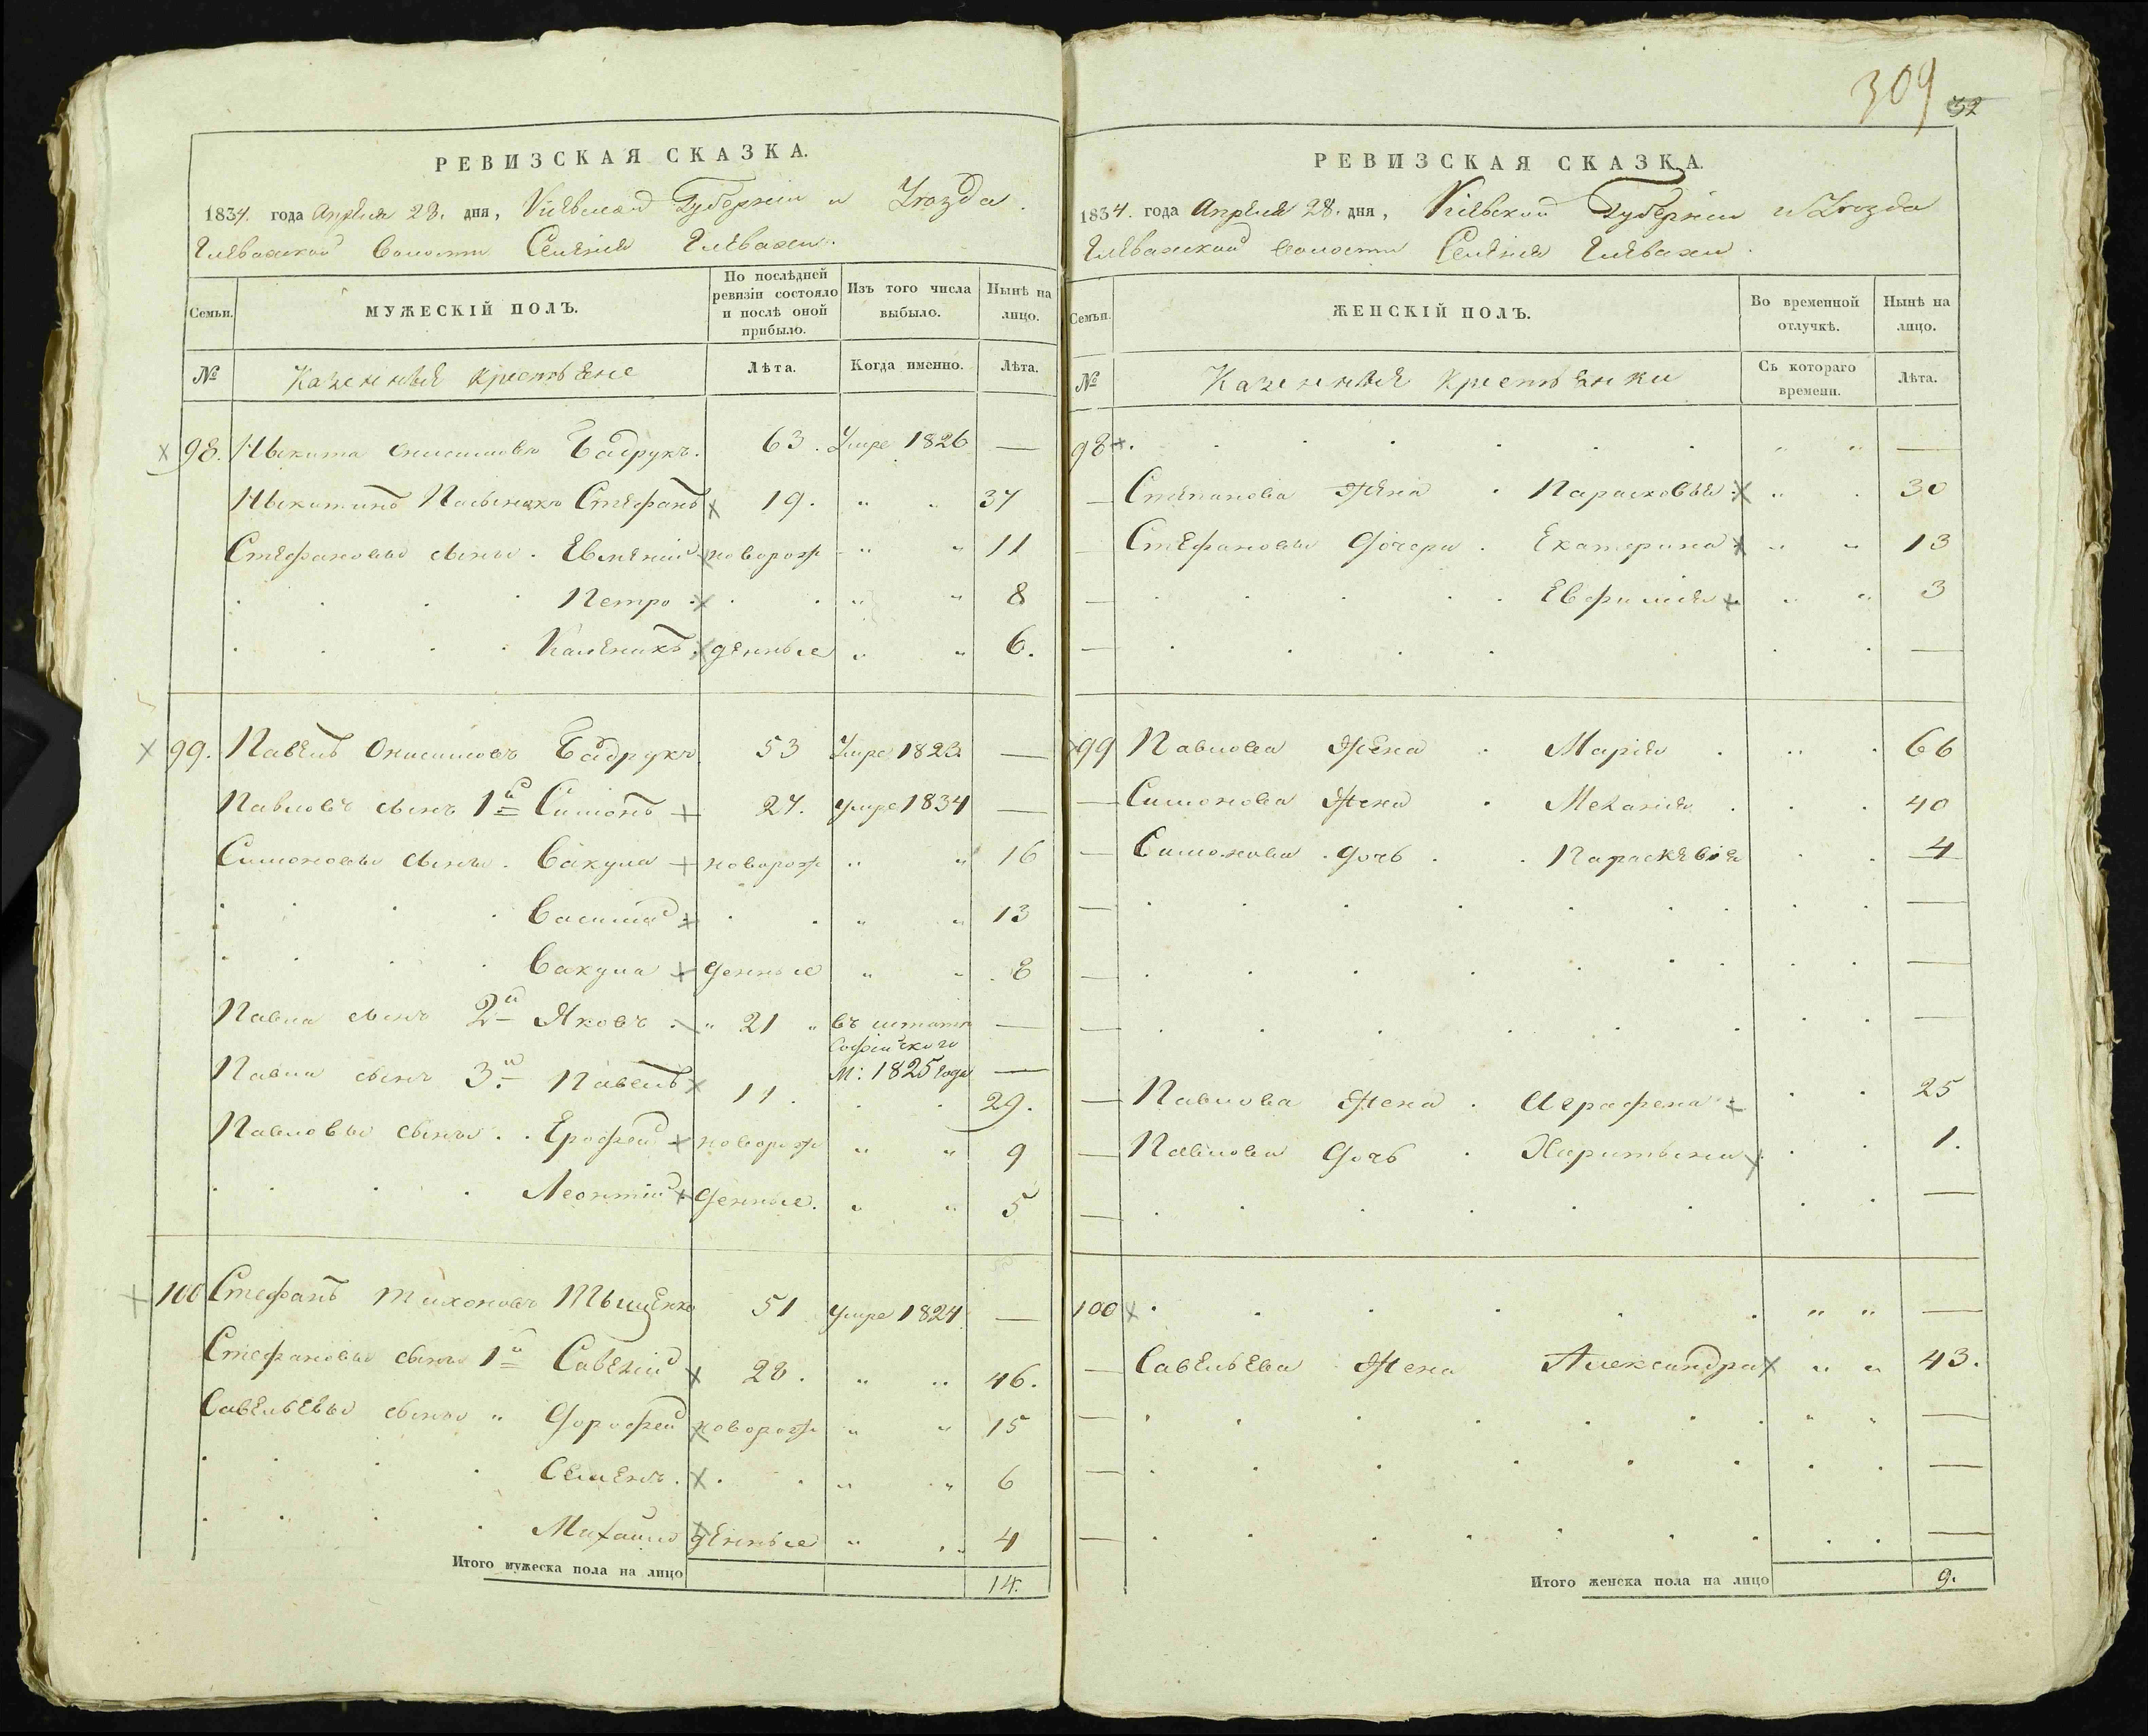 РЕВИЗСКАЯ СКАЗКА.
1834. года Апреля 28. дня, Кіевской Губерніи и Уѣзда
Глевахской Волости Селенія Глевахи.
Семьи.
МУЖЕСКІЙ ПОЛЪ.
По послѣдней ревизіи состояло и послѣ оной прибыло.
Изъ того числа выбыло.
Нынѣ на лицо.
№
Казенные крестьяне
Лѣта.
Когда именно.
Лѣта.
98. Никита Онисимовъ Бадрукъ. 63. Умре 1826 —
Никитинъ Стефанъ 19. " " 37
Стефановы сыны. Евмений новорож " " 11
Петро " " 8
Каленикъ денные " " 6.
99. Павелъ Онисимовъ Бадрукъ 53 Умре 1823. —
Павловъ сынъ 1й Симонъ 27. умре 1834 —
Симоновы сыны. Вакула новорож " " 16
Василий " " 13
Вакула денные " " 8
Павла сынъ 2й Яковъ. " 21 " въ штатъ —
Софійского
Павла сынъ 3й Павелъ 11. М: 1825 года —
29.
Павловы сыны.. Ерофей новорож " " 9
Леонтій денные. " " 5
100 Стефанъ Тихоновъ Тыщенко 51 умре 1824. —
Стефановы сыны 1й Савелій 28. " " 46.
Савельевы сыны " Дорофей новорож " " 15
Семенъ. " " 6
Михайло денные " " 4
Итого мужеска пола на лицо 14.
309
32
РЕВИЗСКАЯ СКАЗКА.
1834. года Апреля 28. дня, Кіевской Губерніи и Уѣзда
Глевахской волости Селенія Глевахи.
Семьи.
ЖЕНСКІЙ ПОЛЪ.
Во временной отлучкѣ.
Нынѣ на лицо.
№
Казенные крестьянки
Съ котораго времени.
Лѣта.
98 " " —
— Степанова жена. Парасковья " . 30
— Стефановы дочери. Екатерина " " 13
— Евфимія " " 3
— —
99 Павлова жена. Марія. " . 66
— Симонова жена. Меланія. 40
— Симонова. дочь. Параскевія 4
— —
— —
— —
— Павлова жена. Аграфена 25
— Павлова дочь. Харитына 1.
— —
100 " " —
— Савельева жена Александра " " 43.
— " " —
— —
— —
Итого женска пола на лицо 9.